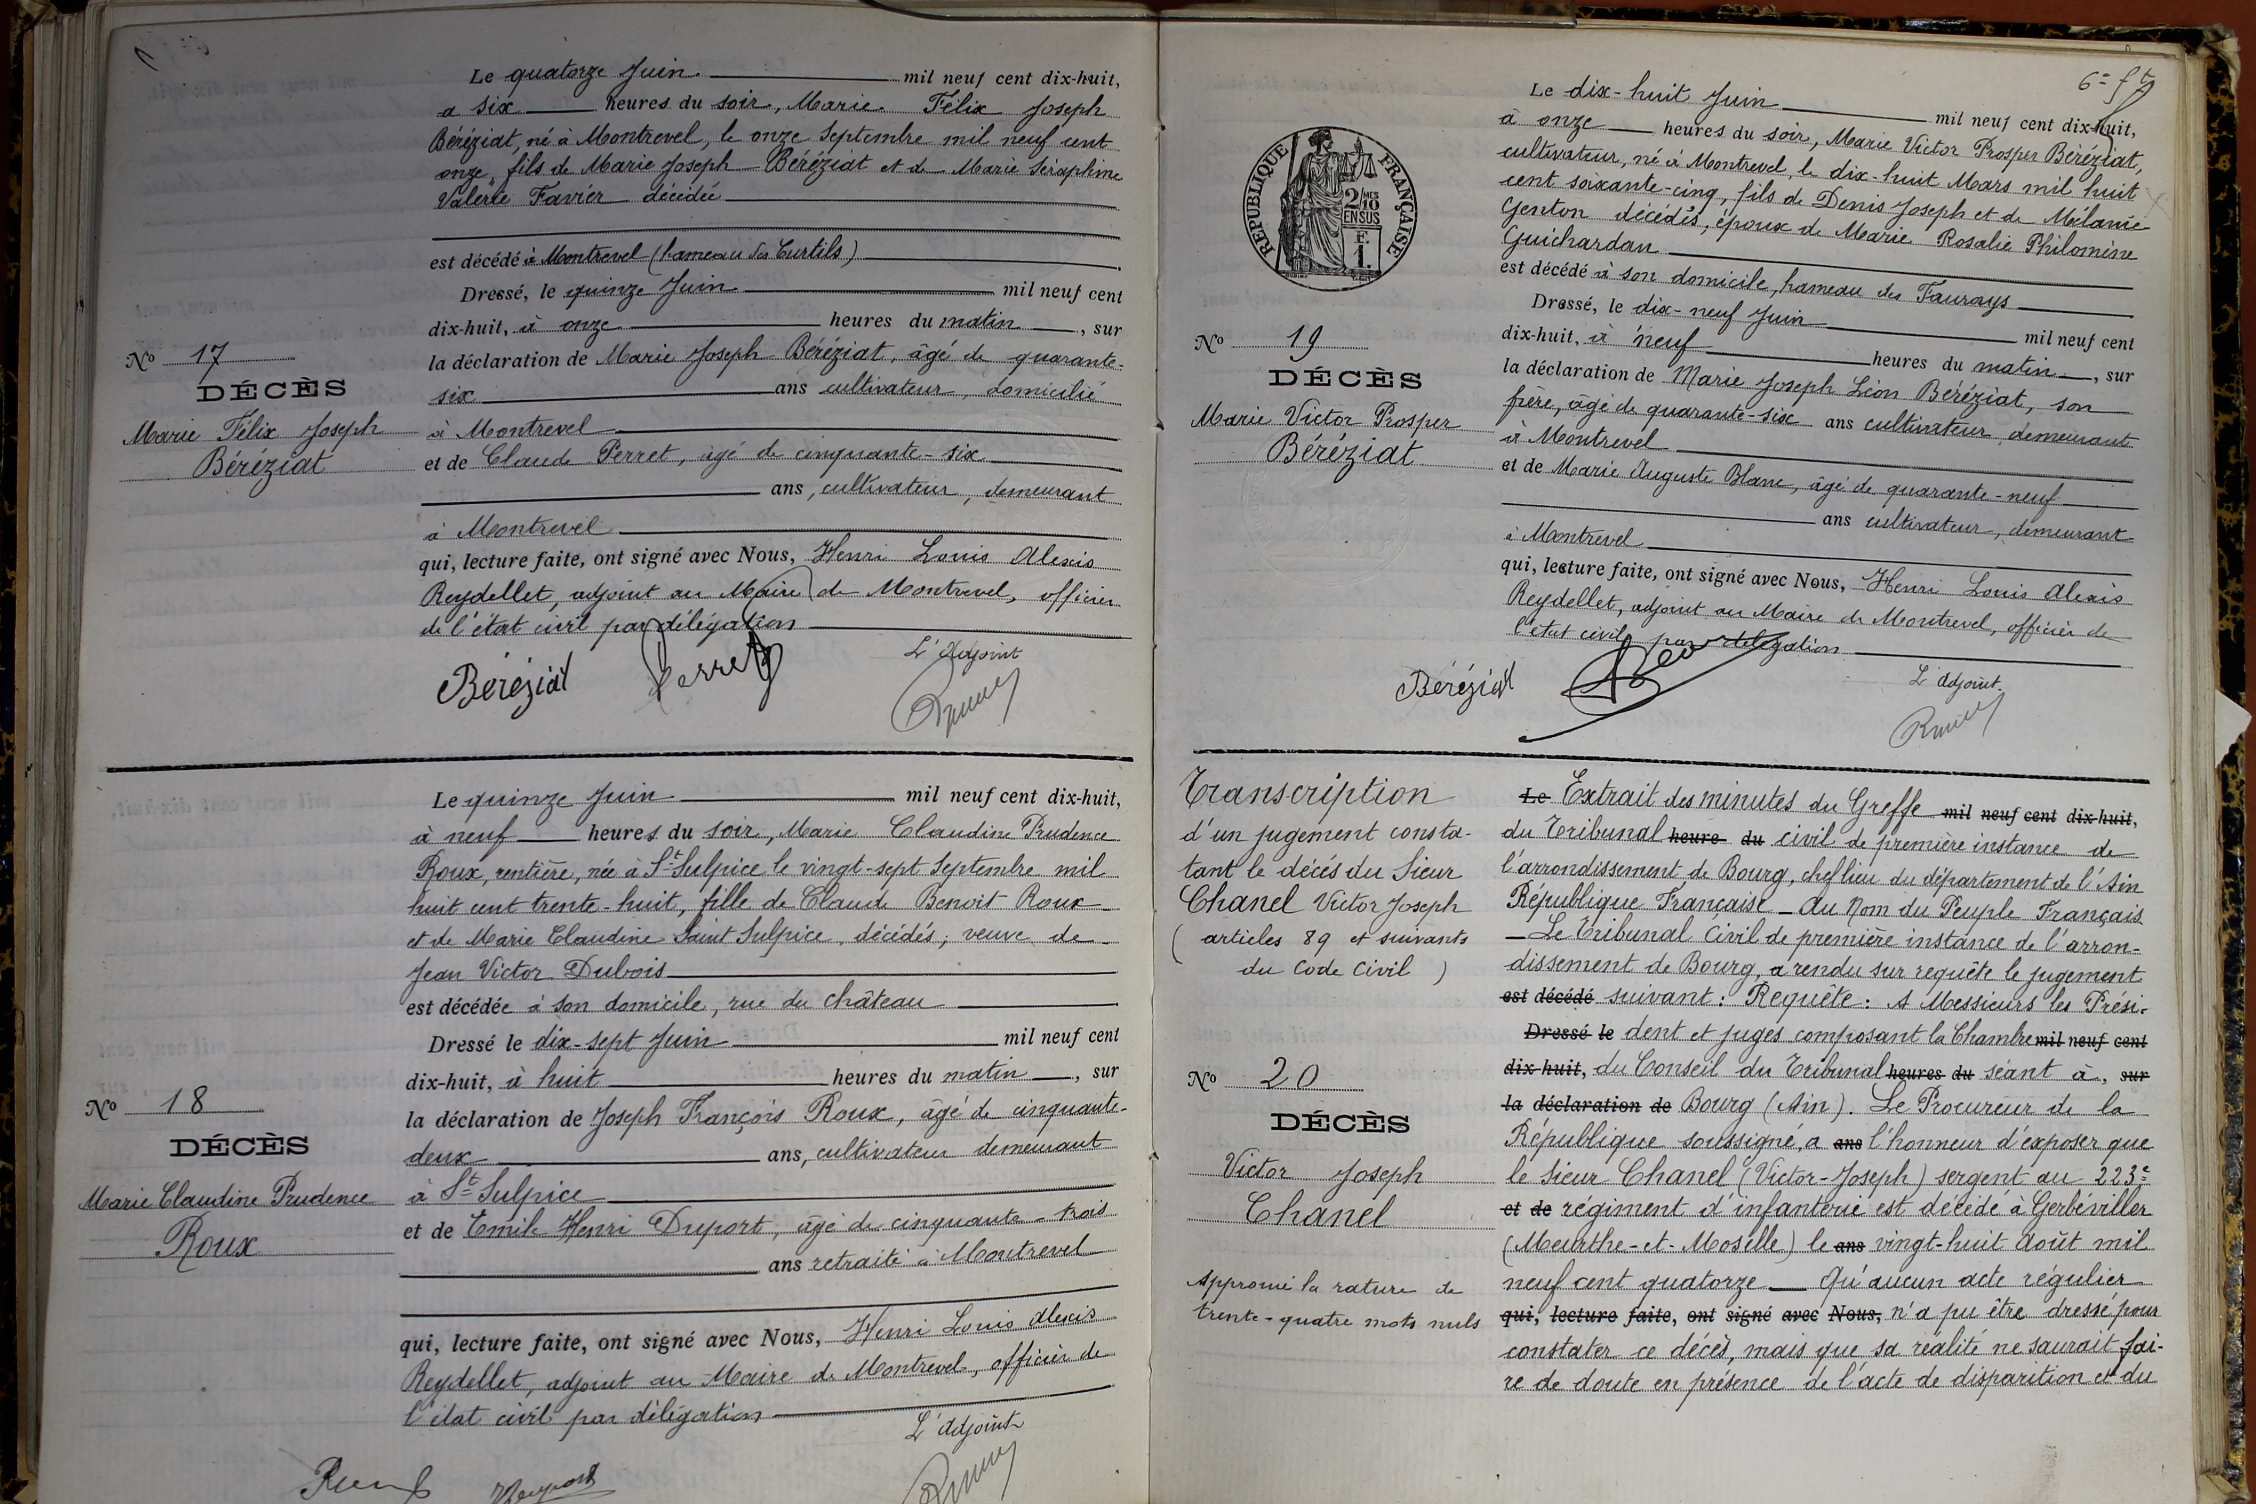 Le quatorze Juin mil neuf cent dix-huit,
a six heures du soir, Marie Félix Joseph
Béréziat, né à Montrevel, le onze Septembre mil neuf cent
onze, fils de Marie Joseph Béréziat et de Marie Séraphine
Valérie Favier décédée
est décédé à Montrevel (hameau des Curtils)
Dressé, le quinze Juin mil neuf cent
dix-huit, à onze heures du matin, sur
No 17
la déclaration de Marie Joseph Béréziat, âgé de quarante-
DÉCÈS
six ans cultivateur, domicilié
Marie Félix Joseph
à Montrevel
Béréziat
et de Claude Perret, âgé de cinquante-six
ans, cultivateur, demeurant
à Montrevel
qui, lecture faite, ont signé avec Nous, Henri Louis Alexis
Reydellet, adjoint au Maire de Montrevel, officier
de l'état civil par délégation
L'Adjoint
Béréziat Perret
Le quinze Juin mil neuf cent dix-huit,
à neuf heures du soir, Marie Claudine Prudence
Roux, rentière, née à St Sulpice le vingt-sept Septembre mil
huit cent trente-huit, fille de Claude Benoit Roux
et de Marie Claudine Saint Sulpice, décédés; veuve de
Jean Victor Dubois
est décédée à son domicile, rue du château
Dressé le dix-sept Juin mil neuf cent
dix-huit, à huit heures du matin, sur
No 18
la déclaration de Joseph François Roux, âgé de cinquante-
DÉCÈS
deux ans, cultivateur demeurant
Marie Claudine Prudence
à St Sulpice
Roux
et de Emile Henri Duport, âgé de cinquante-trois
ans retraité à Montrevel
qui, lecture faite, ont signé avec Nous, Henri Louis Alexis
Reydellet, adjoint au Maire de Montrevel, officier de
l'état civil par délégation
L'adjoint
6e ft
RÉPUBLIQUE FRANÇAISE
2/10 MES
EN SUS
F.
1.
Le dix-huit Juin mil neuf cent dix-huit,
à onze heures du soir, Marie Victor Prosper Béréziat,
cultivateur, né à Montrevel, le dix-huit Mars mil huit
cent soixante-cinq, fils de Denis Joseph et de Mélanie
Genton décédés, époux de Marie Rosalie Philomène
Guichardan
est décédé à son domicile, hameau des Faurays
Dressé, le dix-neuf Juin mil neuf cent
No 19
dix-huit, à neuf heures du matin, sur
DÉCÈS
la déclaration de Marie Joseph Léon Béréziat, son
Marie Victor Prosper
frère, âgé de quarante-six ans cultivateur, demeurant
Béréziat
à Montrevel
et de Marie Auguste Blanc, âgé de quarante-neuf
ans cultivateur, demeurant
à Montrevel
qui, lecture faite, ont signé avec Nous, Henri Louis Alexis
Reydellet, adjoint au Maire de Montrevel, officier de
l'état civil par délégation
L'adjoint
Béréziat
Transcription
d'un jugement consta-
tant le décés du Sieur
Chanel Victor Joseph
(articles 89 et suivants
du Code Civil)
No 20
DÉCÈS
Victor Joseph
Chanel
Approuvé la rature de
trente-quatre mots nuls
Le Extrait des minutes du Greffe mil neuf cent dix-huit,
du Tribunal heure du civil de première instance de
l'arrondissement de Bourg, chef lieu du département de l'Ain
République Française - Au Nom du Peuple Français
- Le Tribunal Civil de première instance de l'arron-
dissement de Bourg, a rendu sur requête le jugement
est décédé suivant: Requête: A Messieurs les Prési-
Dressé le dent et juges composant la Chambre mil neuf cent
dix-huit, du Conseil du Tribunal heures du séant à, sur
la déclaration de Bourg (Ain). Le Procureur de la
République soussigné, a ans l'honneur d'exposer que
le Sieur Chanel (Victor-Joseph) sergent au 223e
et de régiment d'infanterie est décédé à Gerbéviller
(Meurthe-et-Moselle) le ans vingt-huit Août mil
neuf cent quatorze - Qu'aucun acte régulier
qui, lecture faite, ont signé avec Nous, n'a pu être dressé pour
constater ce décès, mais que sa réalité ne saurait fai-
re de doute en présence de l'acte de disparition et du